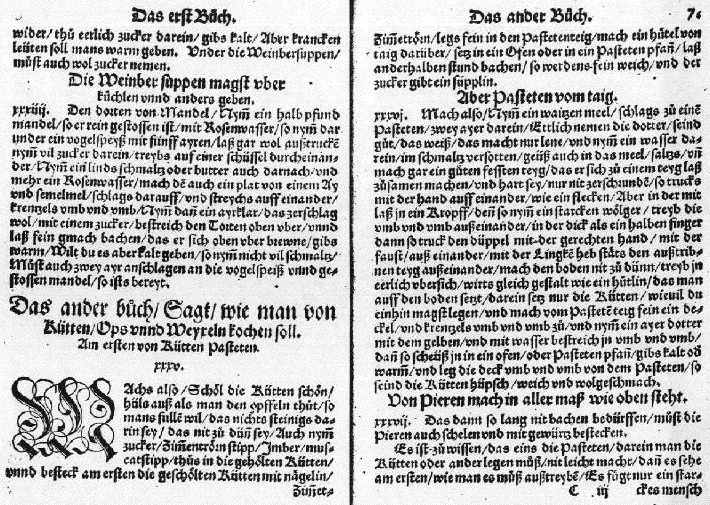 Das erst Bůch.
wider/ thů eerlich zucker darein/ gibs kalt/ Aber krancken
leüten soll mans warm geben. Vnder die Weinbersuppen/
můst auch wol zucker nemen.
Die Weinber suppen magst vber
küchlen vnnd anders geben.
xxxiiij. Den dorten von Mandel/ Nym̃ ein halb pfund
mandel/ so er rein gestossen ist/ mit Rosenwasser/ so nym̃ dar
under ein vogelspeyß mit fünff ayren/ laß gar wol außtruckẽ
nym̃ vil zucker darein/ treybs auf einer schüssel durcheinan-
der/ Nym̃ ein linds schmaltz oder butter auch darnach/ vnd
mehr ein Rosenwasser/ mach dẽ auch ein plat von einem Ay
vnd semelmel/ schlags darauff/ vnd streychs auff einander/
krentzels vmb vnd vmb/ Nym̃ dañ ein ayrklar/ das zerschlag
wol/ mit einem zucker/ bestreich den Torten oben vber/ vnnd
laß fein gmach bachen/ das er sich oben vber brewne/ gibs
warm/ Wilt du es aber kalt geben/ so nym̃ nicht vil schmaltz/
Můst auch zwey ayr anschlagen an die vogelspeiß vnnd ge-
stossen mandel/ so ists bereyt.
Das ander bůch/ Sagt/ wie man von
Kütten/ Ops vnnd Weyxeln kochen soll.
Am ersten von Kütten Pasteten.
xxxv.
MAchs also/ Schöl die Kütten schön/
hüls auß als man den öpffeln thůt/ so
mans füllẽ wil/ das nichts steinigs da-
rin sey/ das nit zů dün̄ sey/ Auch nym̃
zucker/ Zim̃etrörn stipp/ Imber/ mus-
catstipp/ thůs in die gehölten Kütten/
vnnd besteck am ersten die geschölten Kütten mit nägelin/
Zim̃et-
Das ander Bůch. 7
Zim̃etrörn/ legs fein in den Pastetenteig/ mach ein hütel von
taig darüber/ setz in ein Ofen oder in ein Pasteten pfañ/ laß
anderhalben stund bachen/ so werdens fein weich/ vnd der
zucker gibt ein süpplin.
Aber Pasteten vom taig.
xxxvj. Mach also/ Nym̃ ein waitzen meel/ schlags zů einẽ
Pasteten/ zwey ayer darein/ Ettlich nemen die dotter/ seind
gůt/ das weiß/ das macht nur lene/ vnd nym̃ ein wasser da-
rein/ im schmaltz versotten/ geüß auch in das meel/ saltzs/ vñ
mach gar ein gůten festen teyg/ das er sich zů einem teyg laß
zůsamen machen/ vnd hart sey/ nur nit zerschrundẽ/ so trucks
mit der hand auff einander/ wie ein flecken/ Aber in der mit
laß jn ein Kropff/ deñ so nym̃ ein starcken wölger/ treyb die
vmb vnd vmb außeinander/ in der dick als ein halben finger
dann so truck den düppel mit der gerechten hand/ mit der
faust/ auß einander/ mit der Lingkẽ heb stäts den außtrib-
nen teyg außeinander/ mach den boden nit zů dünn/ treyb jn
eerlich vbersich/ wirts gleich gestalt wie ein hütlin/ das man
auff den boden setzt/ darein setz nur die Kütten/ wieuil du
einhin magst legen/ vnd mach vom Pastetẽ teig fein ein de-
ckel/ vnd krentzels vmb vnd vmb zů/ vnd nym̃ ein ayer dotter
mit dem gelben/ vnd mit wasser bestreich jn vmb vnd vmb/
dañ so scheüß jn in ein ofen/ oder Pasteten pfañ/ gibs kalt od̃
warm/ vnd leg die deck vmb vnd vmb vmb dem Pasteten/ so
seind die Kütten hüpsch/ weich vnd wolgeschmach.
Von Pieren mach in aller maß wie oben steht.
xxxvij. Das dann so lang nit bachen bedürffen/ můst die
Pieren auch schelen vnd mit gewürtz bestecken.
Es ist zů wissen/ das eins die Pasteten/ darein man die
Kütten oder ander legen můß/ nit leicht macht/ dañ es sehe
am ersten/ wie man es můß außtreybẽ/ Es fügt nur ein star-
C iij ckes mensch